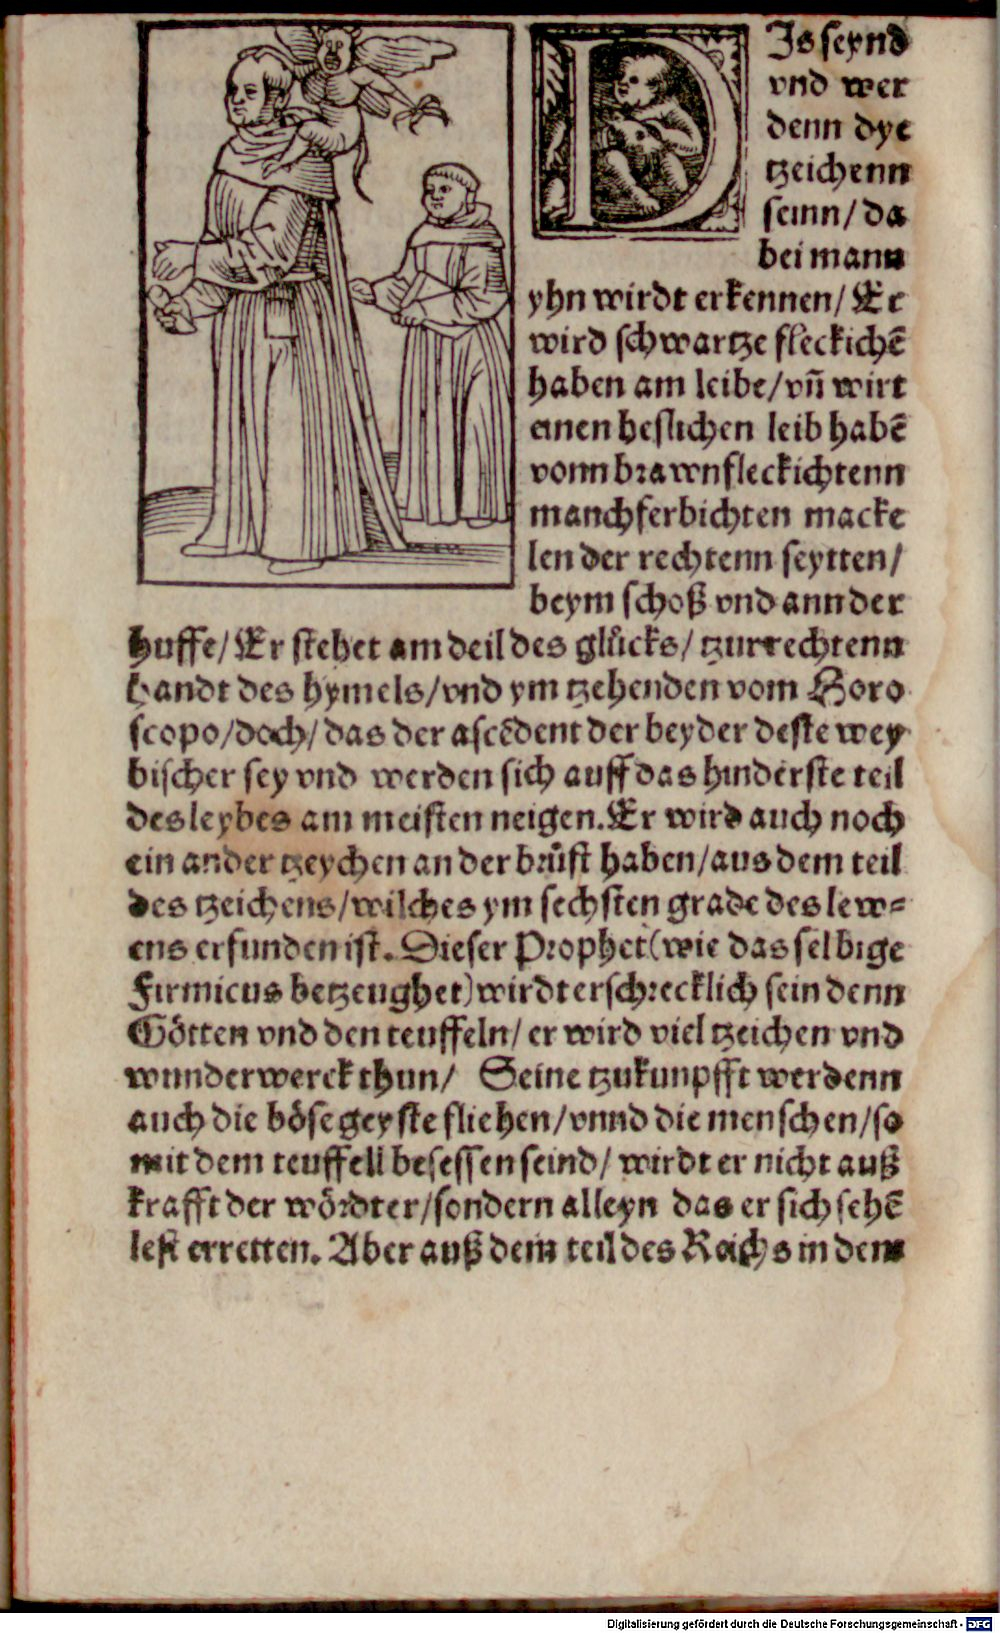 DJs seynd
vnd wer
denn dye
tzeichenn
seinn/ da
bei mann
yhn wirdt erkennen/ Er
wird schwartze fleckichē
haben am leibe/ vñ wirt
einen heslichen leib habē
vonn brawnfleckichtenn
manchferbichten macke
len der rechtenn seytten/
beym schoß vnd ann der
huffe/ Er stehet am deil des glůcks/ tzur rechtenn
handt des hymels/ vnd ym tzehenden vom Horo
scopo/ doch/ das der ascēdent der beyder deste wey
bischer sey vnd werden sich auff das hinderste teil
des leybes am meisten neigen. Er wird auch noch
ein ander tzeychen an der brůst haben/ aus dem teil
des tzeichens/ wilches ym sechsten grade des lew=
ens erfunden ist. Dieser Prophet (wie das selbige
Firmicus betzeughet) wirdt erschrecklich sein denn
Götten vnd den teuffeln/ er wird viel tzeichen vnd
wunderwerck thun/ Seine tzukunpfft werdenn
auch die böse geyste fliehen/ vnnd die menschen/ so
mit dem teuffell besessen seind/ wirdt er nicht auß
krafft der wördter/ sondern alleyn das er sich sehē
lest erretten. Aber auß dem teil des Reichs in dem
Digitalisierung gefördert durch die Deutsche Forschungsgemeinschaft - DFG